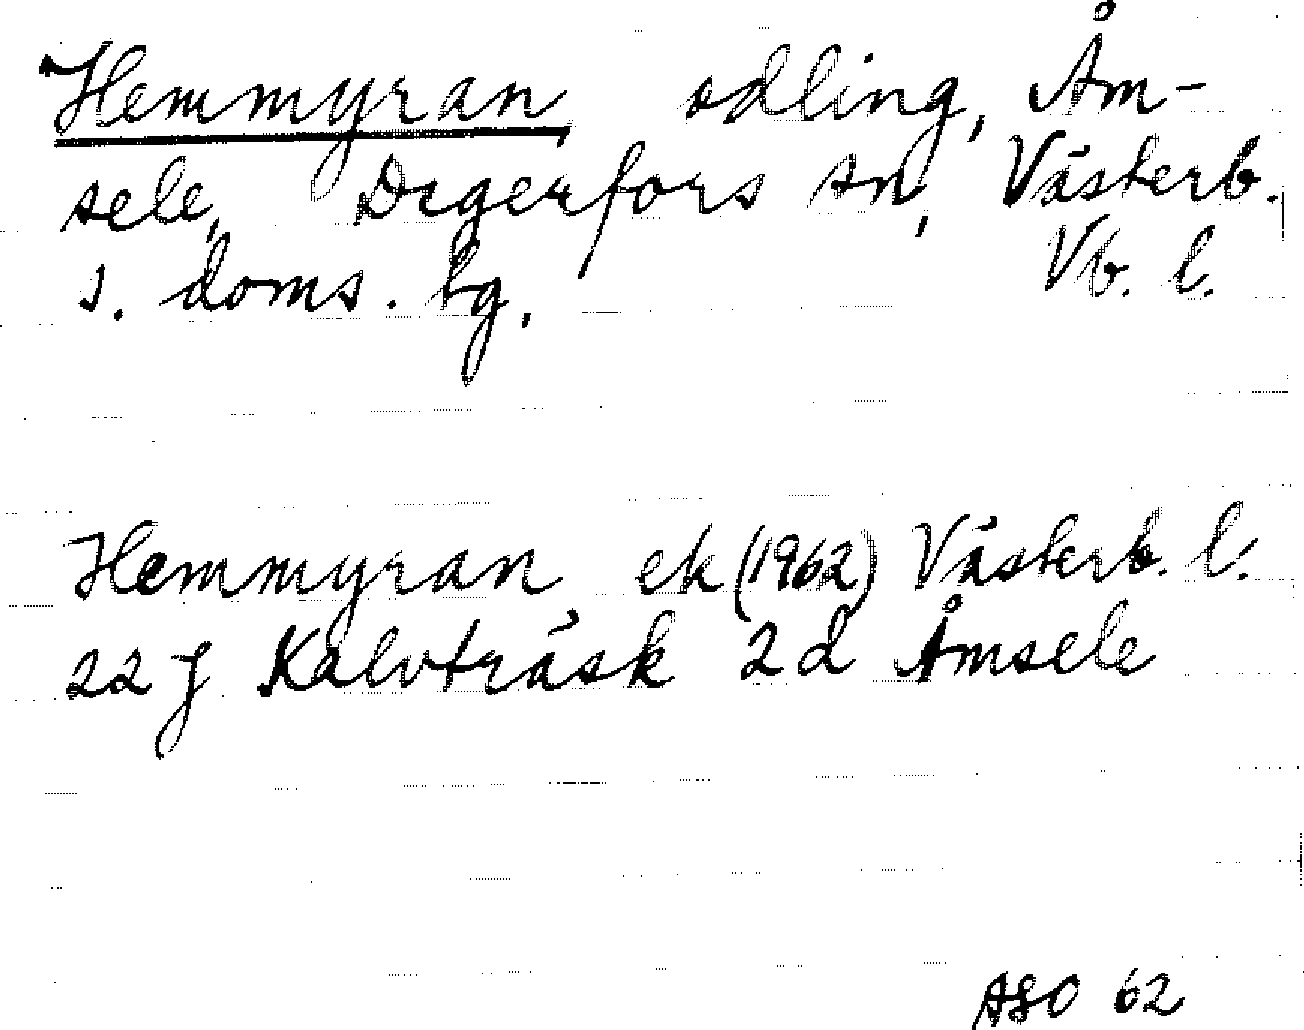 Hemmyran odling, Åm-
sele, Degerfors sn, Västerb.
s. doms. tg, Vb. l.
Hemmyran ek (1962) Västerb. l.
22 J Kalvträsk 2 d Åmsele
ASO 62